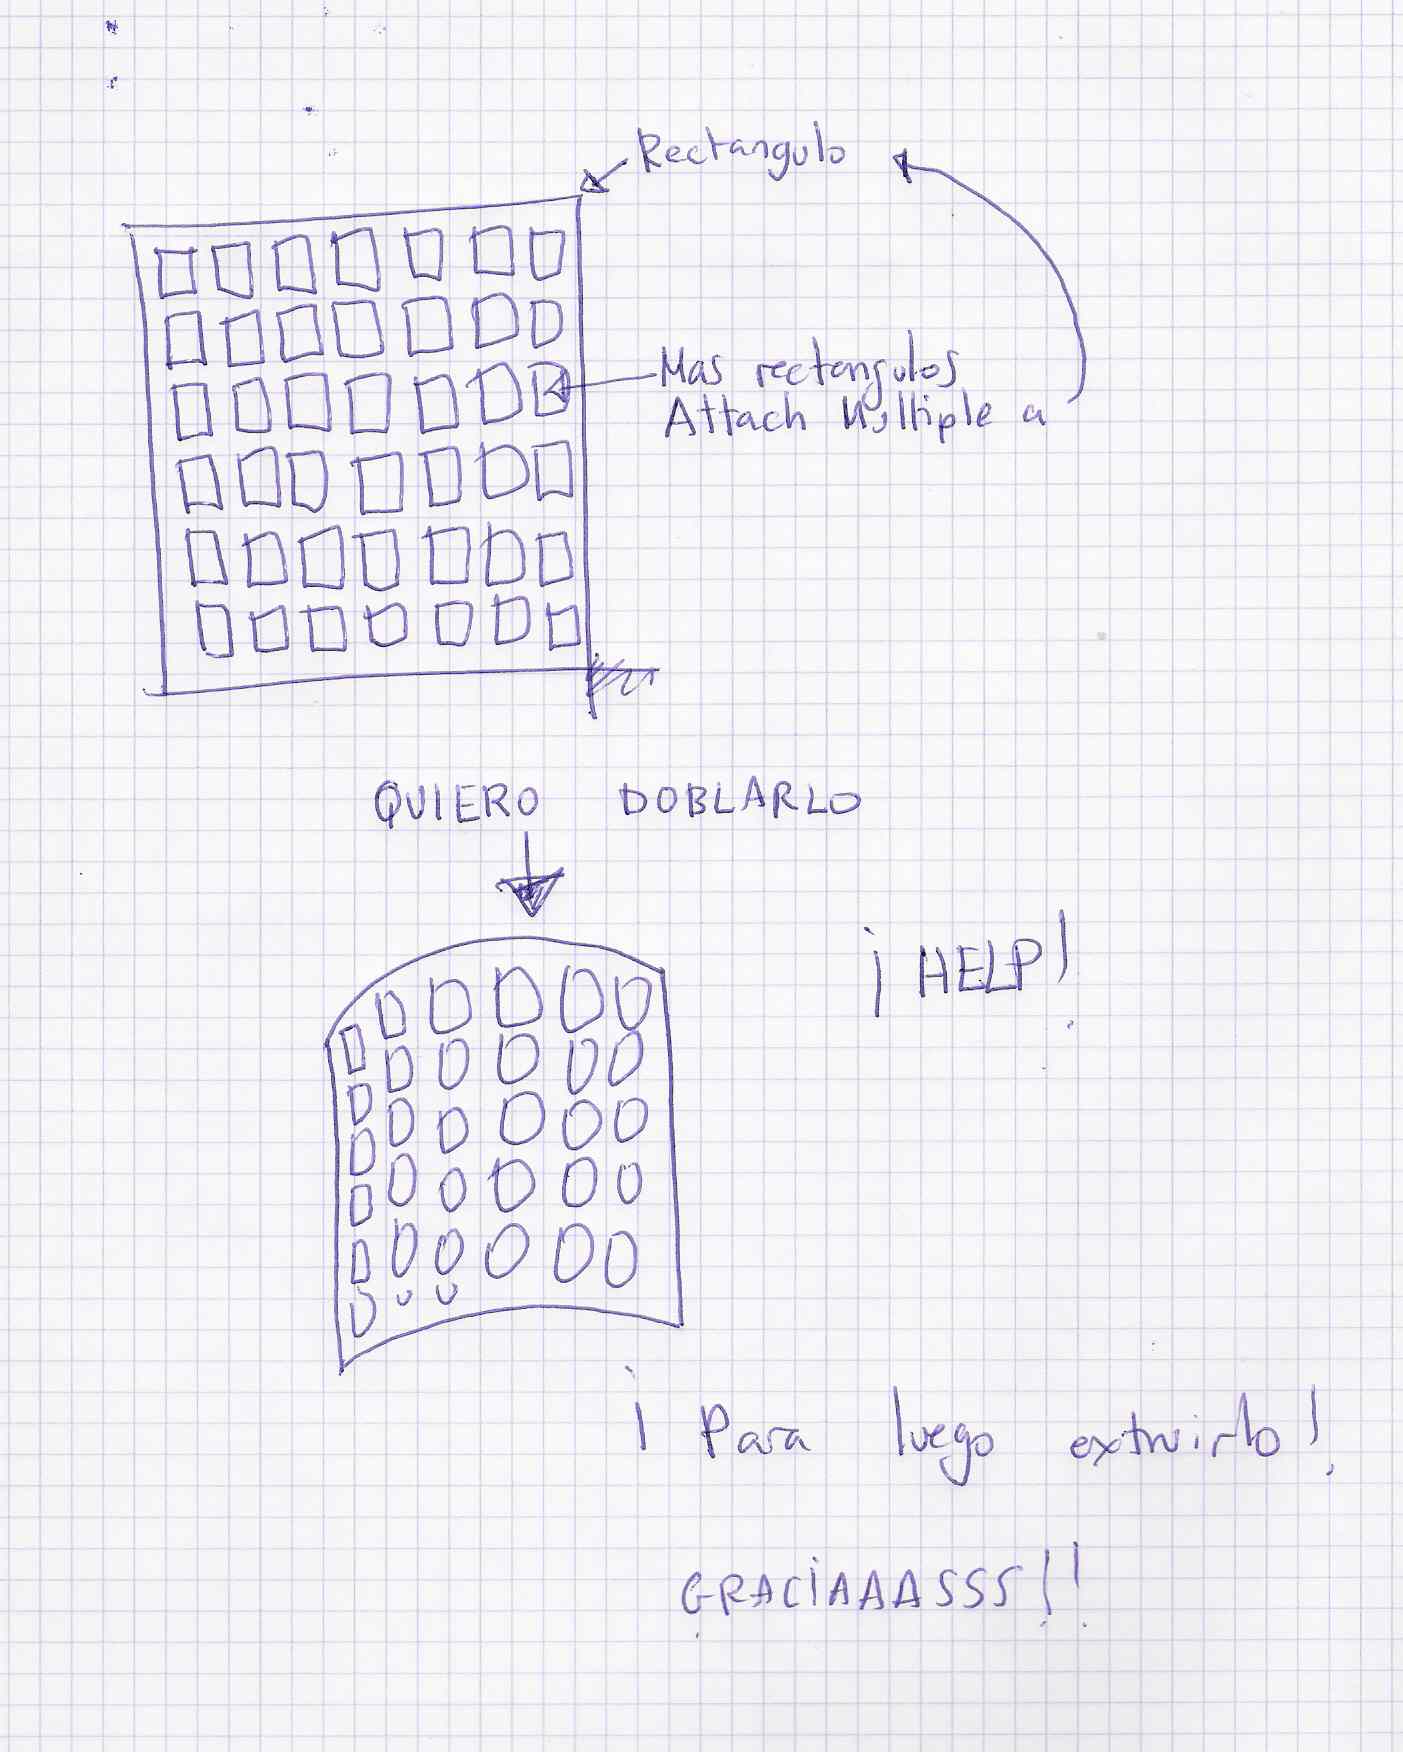 Rectangulo
Mas rectangulos
Attach Multiple a
QUIERO DOBLARLO
¡HELP!
¡Para luego extruirlo!
GRACIAAASSS!!